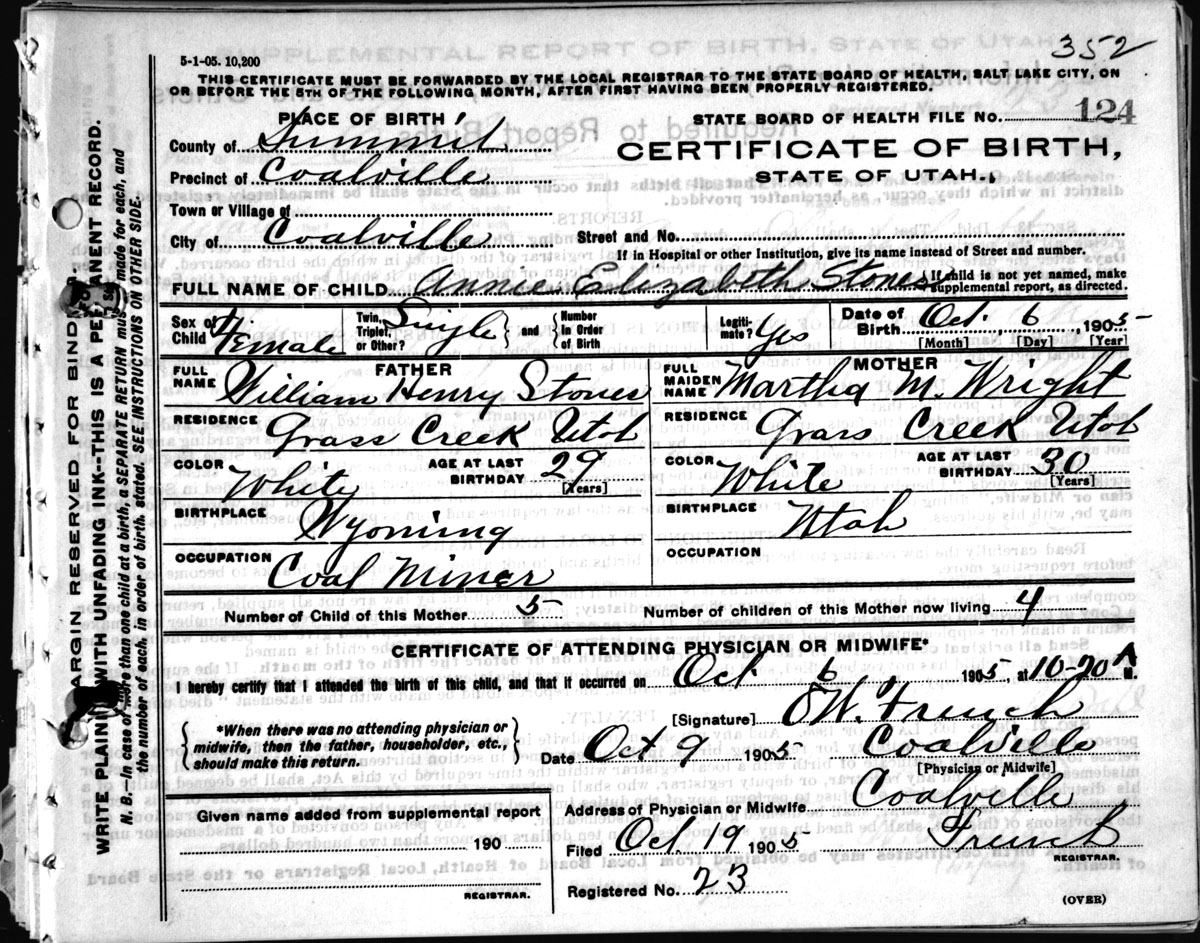 352
5-1-05. 10,200
THIS CERTIFICATE MUST BE FORWARDED BY THE LOCAL REGISTRAR TO THE STATE BOARD OF HEALTH, SALT LAKE CITY, ON
OR BEFORE THE 5TH OF THE FOLLOWING MONTH, AFTER FIRST HAVING BEEN PROPERLY REGISTERED.
PLACE OF BIRTH
STATE BOARD OF HEALTH FILE No. 124
County of Summit
CERTIFICATE OF BIRTH,
Precinct of Coalville
STATE OF UTAH.
Town or Village of
City of Coalville
Street and No.
If in Hospital or other Institution, give its name instead of Street and number.
FULL NAME OF CHILD Annie Elizabeth Stones
If child is not yet named, make
supplemental report, as directed.
Sex of Child Female
Twin, Triplet, or Other? Single
and Number in Order of Birth
Legiti-mate? Yes
Date of Birth Oct. 6, 1905
[Month] [Day] [Year]
FATHER
FULL NAME William Henry Stones
MOTHER
FULL MAIDEN NAME Martha M. Wright
RESIDENCE Grass Creek Utah
RESIDENCE Grass Creek Utah
COLOR White
AGE AT LAST BIRTHDAY 29
[Years]
COLOR White
AGE AT LAST BIRTHDAY 30
[Years]
BIRTHPLACE Wyoming
BIRTHPLACE Utah
OCCUPATION Coal Miner
OCCUPATION
Number of Child of this Mother 5
Number of children of this Mother now living 4
CERTIFICATE OF ATTENDING PHYSICIAN OR MIDWIFE*
I hereby certify that I attended the birth of this child, and that it occurred on Oct 6, 1905, at 10-20 A M.
*When there was no attending physician or
midwife, then the father, householder, etc.,
should make this return.
[Signature] French
Date Oct 9 1905 Coalville
[Physician or Midwife]
Given name added from supplemental report
190
REGISTRAR.
Address of Physician or Midwife Coalville
Filed Oct 19 1905 French
REGISTRAR.
Registered No. 23
(OVER)
MARGIN RESERVED FOR BINDING.
WRITE PLAINLY WITH UNFADING INK--THIS IS A PERMANENT RECORD.
N. B.--In case of more than one child at a birth, a SEPARATE RETURN must be made for each, and
the number of each, in order of birth, stated. SEE INSTRUCTIONS ON OTHER SIDE.